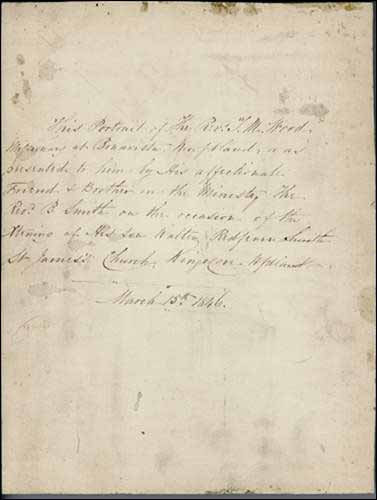 This Portrait of The Revd. T. M. Wood
Missionary at Bonavista Newfland, was
presented to him by His affectionate
Friend & Brother in the Ministry The
Revd. B. Smith on the occasion of the
Xtning of His Son Walter Smith
St. James' Church
March 15th. 1846.